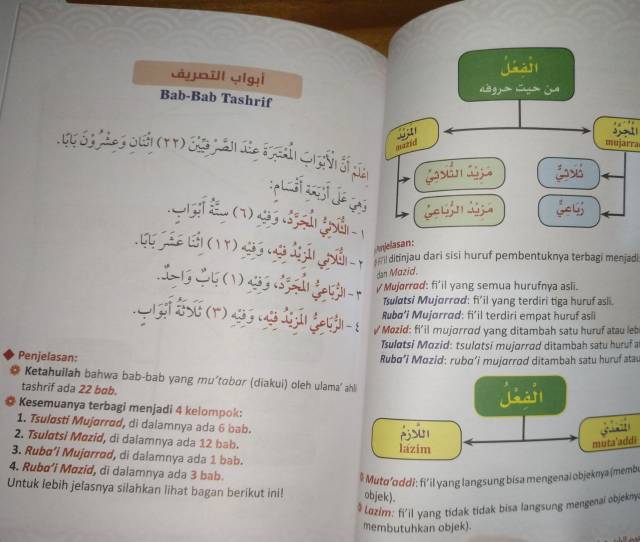 أبواب التصريف
Bab-Bab Tashrif
اِعْلَمْ أَنَّ الْأَبْوَابَ الْمُعْتَبَرَةَ عِنْدَ الصَّرْفِيِّيْنَ (٢٢) اِثْنَانِ وَعِشْرُوْنَ بَابًا.
وَهِيَ عَلَى أَرْبَعَةِ أَقْسَامٍ:
١ - الثُّلَاثِيُّ الْمُجَرَّدُ، وَفِيْهِ (٦) سِتَّةُ أَبْوَابٍ.
٢ - الثُّلَاثِيُّ الْمَزِيْدُ فِيْهِ، وَفِيْهِ (١٢) اِثْنَا عَشَرَ بَابًا.
٣ - الرُّبَاعِيُّ الْمُجَرَّدُ، وَفِيْهِ (١) بَابٌ وَاحِدٌ.
٤ - الرُّبَاعِيُّ الْمَزِيْدُ فِيْهِ، وَفِيْهِ (٣) ثَلَاثَةُ أَبْوَابٍ.
Penjelasan:
Ketahuilah bahwa bab-bab yang mu'tabar (diakui) oleh ulama' ahli
tashrif ada 22 bab.
Kesemuanya terbagi menjadi 4 kelompok:
1. Tsulasti Mujarrad, di dalamnya ada 6 bab.
2. Tsulatsi Mazid, di dalamnya ada 12 bab.
3. Ruba'i Mujarrad, di dalamnya ada 1 bab.
4. Ruba'i Mazid, di dalamnya ada 3 bab.
Untuk lebih jelasnya silahkan lihat bagan berikut ini!
الْفِعْلُ
من حيث حروفه
الْمَزِيْدُ
mazid
الْمُجَرَّدُ
mujarra
مَزِيْدُ الثُّلَاثِيِّ
ثُلَاثِيٌّ
مَزِيْدُ الرُّبَاعِيِّ
رُبَاعِيٌّ
Penjelasan:
Fi'il ditinjau dari sisi huruf pembentuknya terbagi menjadi
dan Mazid.
Mujarrad: fi'il yang semua hurufnya asli.
Tsulatsi Mujarrad: fi'il yang terdiri tiga huruf asli.
Ruba'i Mujarrad: fi'il terdiri empat huruf asli
Mazid: fi'il mujarrad yang ditambah satu huruf atau leb
Tsulatsi Mazid: tsulatsi mujarrad ditambah satu huruf a
Ruba'i Mazid: ruba'i mujarrad ditambah satu huruf atau
الْفِعْلُ
اللَّازِمُ
lazim
الْمُتَعَدِّيْ
muta'addi
Muta'addi: fi'il yang langsung bisa mengenai objeknya (memb
objek).
Lazim: fi'il yang tidak tidak bisa langsung mengenai objekny
membutuhkan objek).